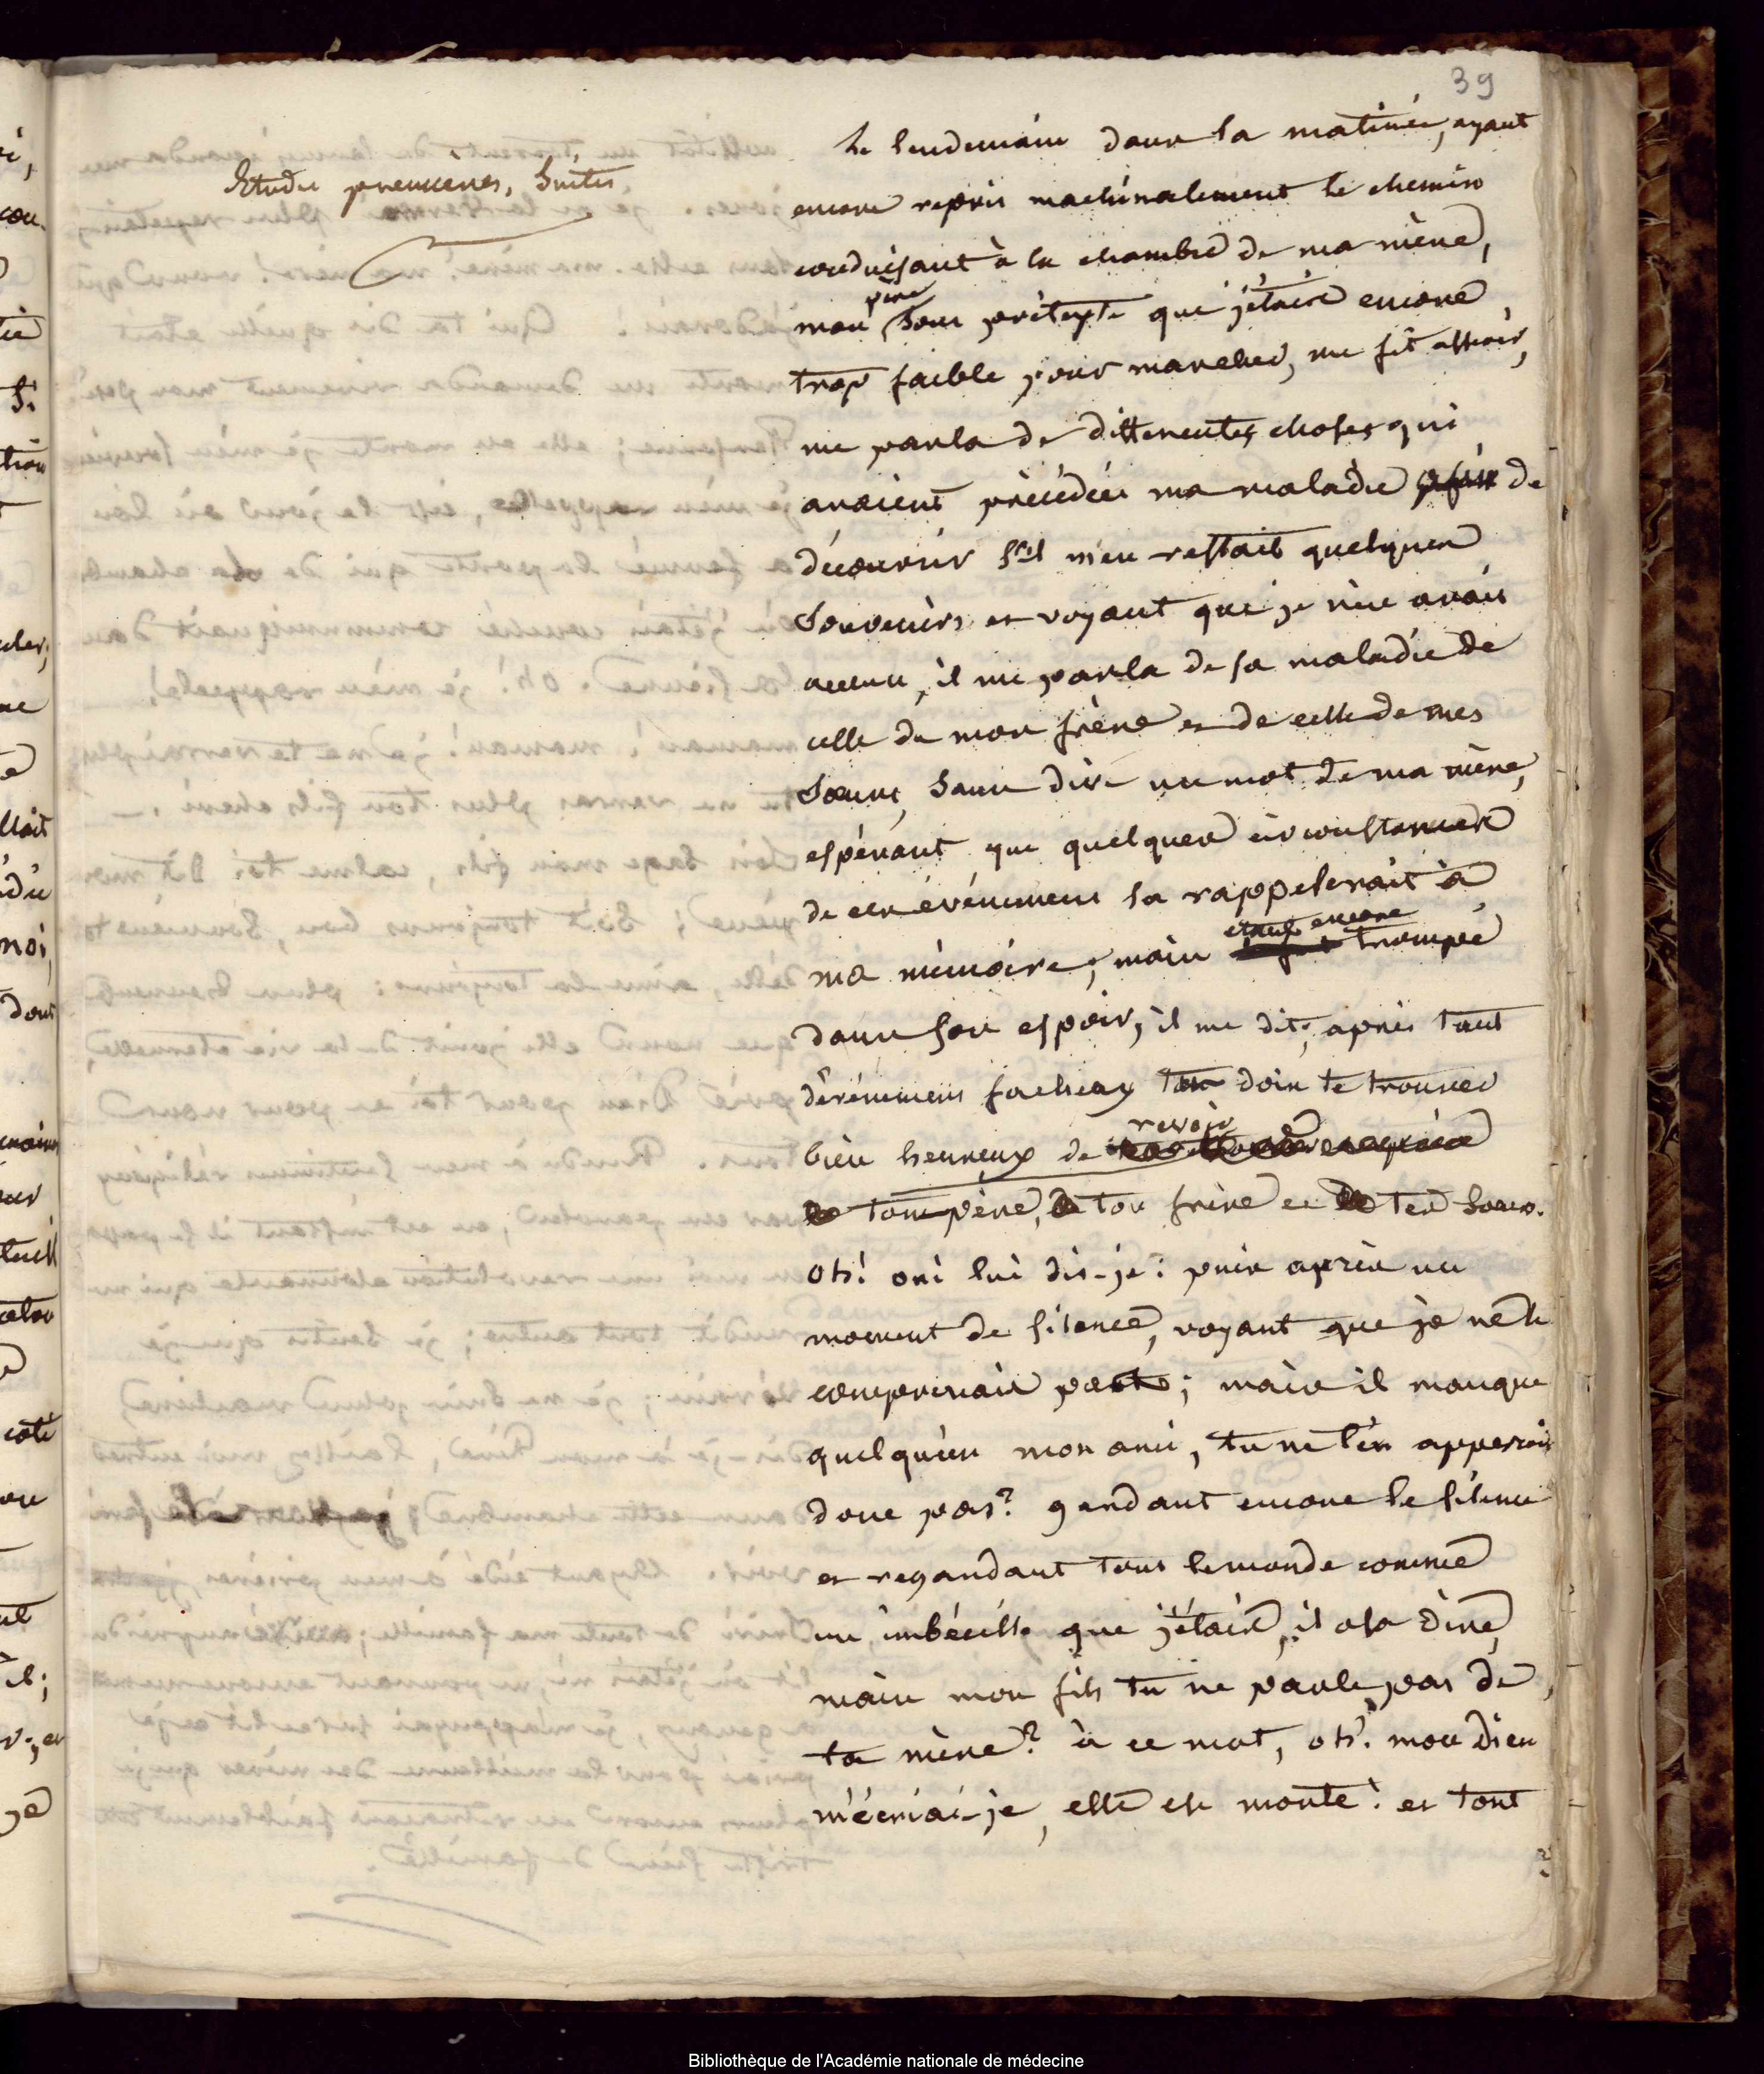 39
Etudes premieres, Suites
Le lendemain dans la matinée, ayant
encore repris machinalement le chemin
conduisant à la chambre de ma mère,
mon père sous prétexte que j'étais encore
trop faible pour marcher, me fit asseoir,
me parla de differentes choses qui
avaient précédées ma maladie de
découvrir s'il m'en restait quelques
Souvenirs et voyant que je n'en avais
aucun, il me parla de sa maladie de
celle de mon frère et de celle de mes
Sœurs, sans dire un mot de ma mère,
espérant que quelques circonstances
de ces événemens la rappelerait à
ma mémoire; mais étant encore trompé
dans son espoir, il me dit; après tant
d'événemens facheux tu dois te trouver
bien heureux de revoir
ton père, ton frère et tes sœurs.
Oh! oui lui dis-je: puis après un
moment de silence, voyant que je ne le
comprenais pas; mais il manque
quelqu'un mon ami, tu ne t'en apperçois
donc pas? gardant encore le silence
et regardant tous le monde comme
un imbécille que j'étais, il osa dire,
mais mon fils tu ne parle pas de
ta mère? à ce mot, oh! mon Dieu
m'écriai-je, elle est morte! et tout
Bibliothèque de l'Académie nationale de médecine